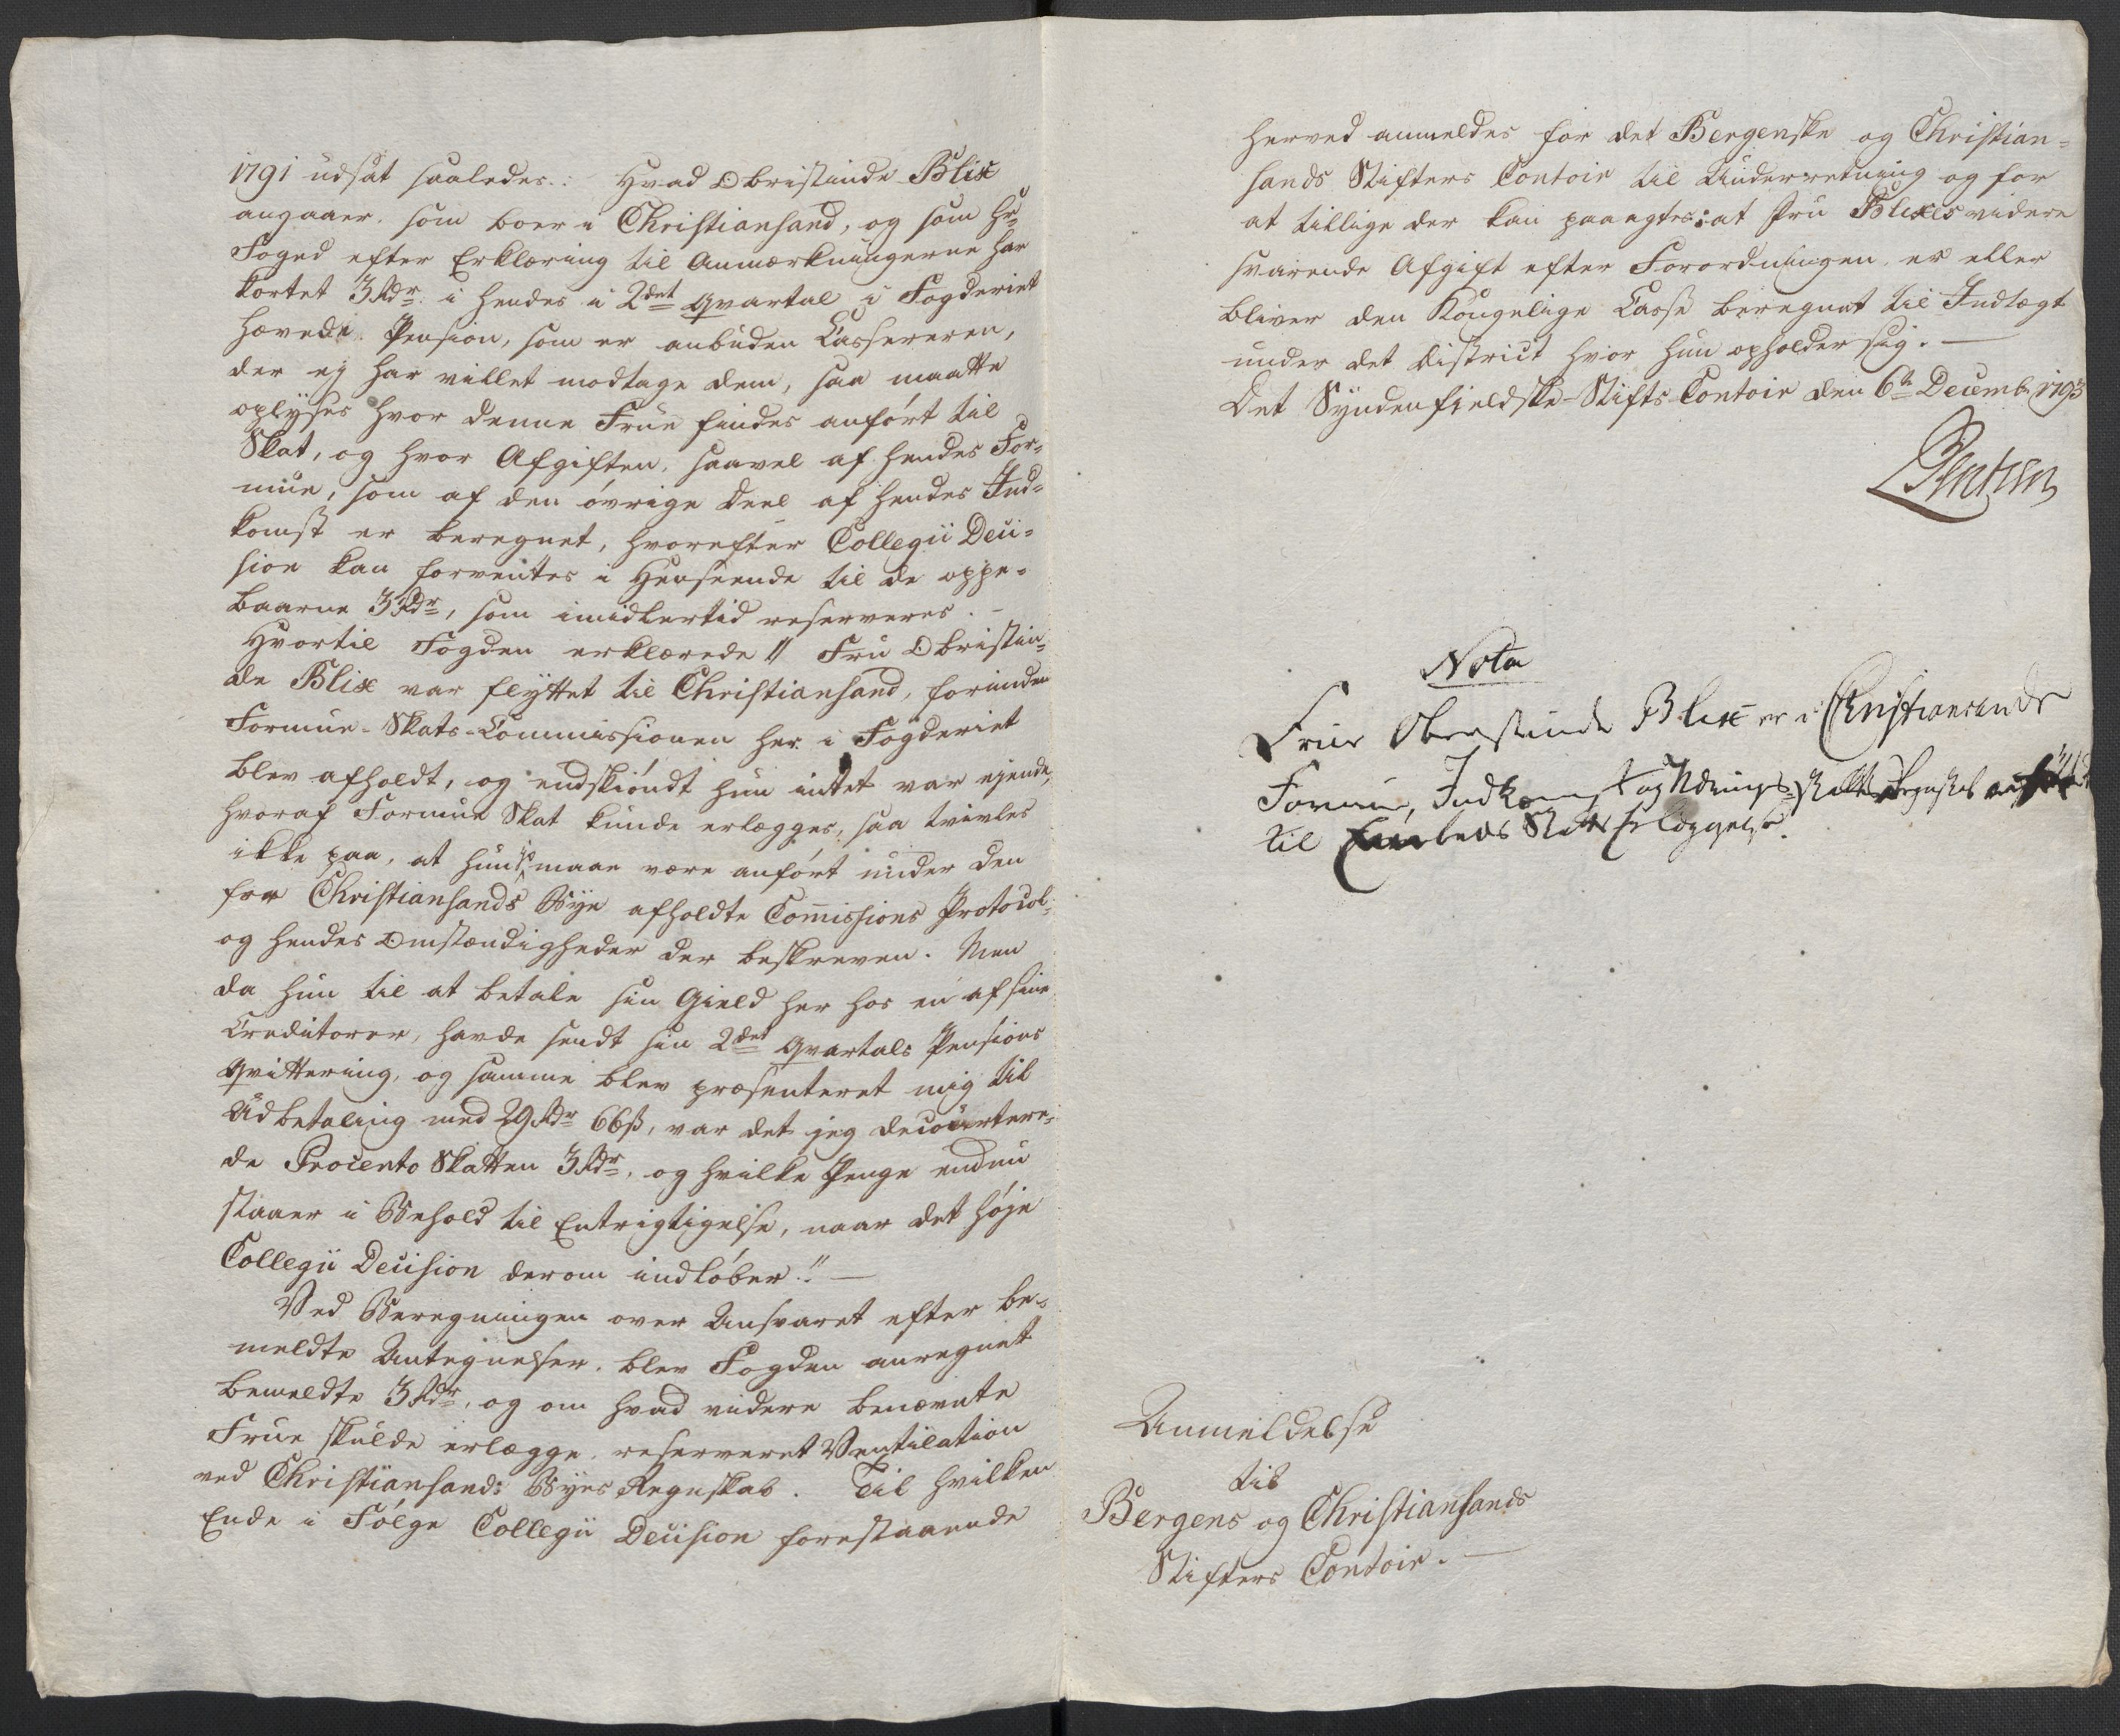 1791 udsat saaledes: Hvad Obristinde Blix
angaaer, som boer i Christiansand, og som Hr
Foged efter Erklæring til Anmærkningerne har
kortet 3 Rdr i hendes i 2det Qvartal i Fogderiet
hævede Pension, som er anbuden Cassereren,
der ej har villet modtage dem, saa maatte
oplyses hvor denne Frue findes anført til
Skat, og hvor Afgiften, saavel af hendes For-
mue, som af den øvrige Deel af hendes Ind-
komst er beregnet, hvorefter Collegii Deci-
sion kan forventes i Henseende til de oppe-
baarne 3 Rdr, som imidlertid reserveres. -
Hvortil Fogden erklærede " Fru Obristin-
de Blix var flyttet til Christiansand, forinden
Formue-Skats-Commissionen her i Fogderiet
blev afholdt, og endskiøndt hun intet var ejende,
hvoraf Formue Skat kunde erlægges, saa tvivles
ikke paa, at hun jo maae være anført under den
for Christiansands Bye afholdte Comissions Protocol
og hendes Omstændigheder der beskreven. Men
da hun til at betale sin Gield her hos en af sine
Creditorer, havde sendt sin 2det Qvartals Pensions
Qvittering, og samme blev præsenteret mig til
Udbetaling med 29 Rdr 66 ß, var det jeg decourtere-
de Procento Skatten 3 Rdr, og hvilke Penge endnu
staaer i Behold til Entrigtigelse, naar det høje
Collegii Decision derom indløber." —
Ved Beregningen over Ansvaret efter be-
meldte Antegnelser, blev Fogden anregnet
bemeldte 3 Rdr, og om hvad videre benævnte
Frue skulde erlægge, reserveret Ventilation
ved Christiansands Byes Regnskab. Til hvilken
Ende i Følge Collegii Decision forestaaende
herved anmeldes for det Bergenske og Christian-
sands Stifters Contoir til Underretning og for
at tillige der kan paaagtes: at Fru Blixes videre
svarende Afgift efter Forordningen er eller
bliver den Kongelige Casse beregnet til Indtægt
under det District hvor hun opholder sig. —
Det Syndenfieldske-Stifts-Contoir den 6te Decemb. 1793
Bentzen
Nota
Frue Oberstinde Blix er i Christiansands
Formue, Indkomst og Nærings Skatte Regnskab
til Skats Erlæggelse.
Anmeldelse
til
Bergens og Christiansands
Stifters Contoir. —